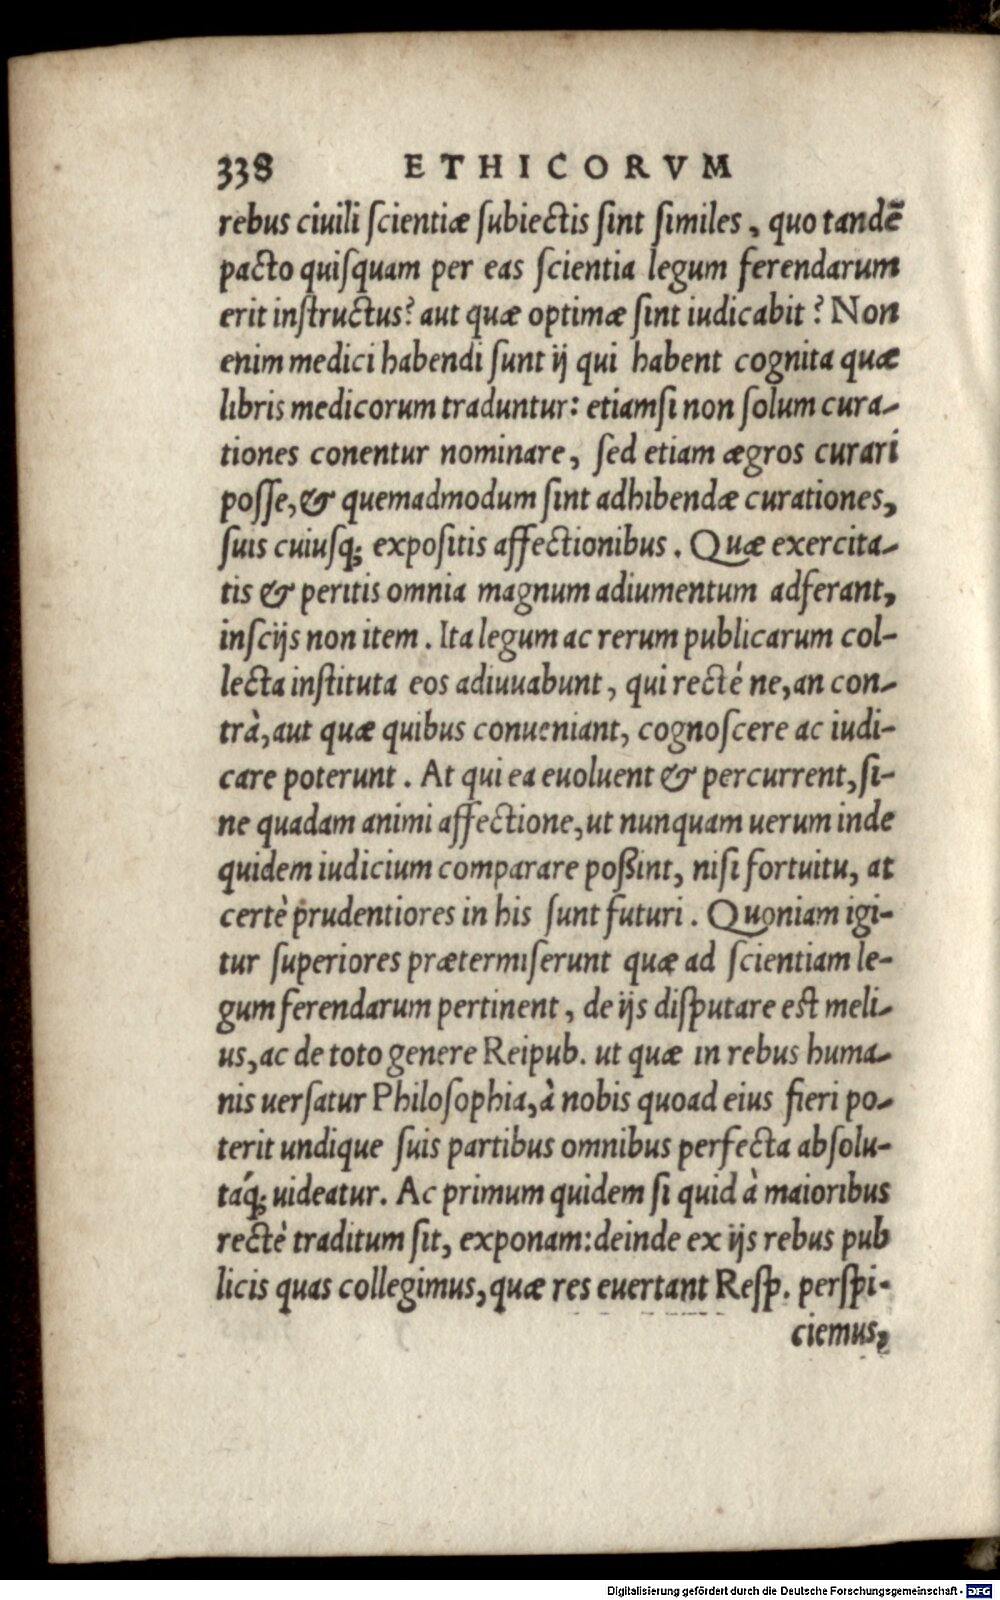 338 ETHICORVM
rebus ciuili ſcientiæ ſubiectis ſint ſimiles, quo tandē
pacto quiſquam per eas ſcientia legum ferendarum
erit inſtructus? aut quæ optimæ ſint iudicabit? Non
enim medici habendi ſunt ij qui habent cognita quæ
libris medicorum traduntur: etiamſi non ſolum cura-
tiones conentur nominare, ſed etiam ægros curari
poſſe, & quemadmodum ſint adhibendæ curationes,
ſuis cuiuſq; expoſitis affectionibus. Quæ exercita-
tis & peritis omnia magnum adiumentum adferant,
inſcijs non item. Ita legum ac rerum publicarum col-
lecta inſtituta eos adiuuabunt, qui recté ne, an con-
trà, aut quæ quibus conueniant, cognoſcere ac iudi-
care poterunt. At qui ea euoluent & percurrent, ſi-
ne quadam animi affectione, ut nunquam uerum inde
quidem iudicium comparare poßint, niſi fortuitu, at
certè prudentiores in his ſunt futuri. Quoniam igi-
tur ſuperiores prætermiſerunt quæ ad ſcientiam le-
gum ferendarum pertinent, de ijs diſputare eſt meli-
us, ac de toto genere Reipub. ut quæ in rebus huma-
nis uerſatur Philoſophia, à nobis quoad eius fieri po-
terit undique ſuis partibus omnibus perfecta abſolu-
táq; uideatur. Ac primum quidem ſi quid à maioribus
recté traditum ſit, exponam: deinde ex ijs rebus pub
licis quas collegimus, quæ res euertant Reſp. perſpi-
ciemus,
Digitalisierung gefördert durch die Deutsche Forschungsgemeinschaft - DFG